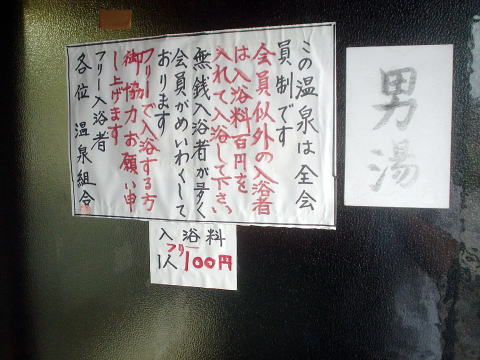 男湯
この温泉は全会
員制です
会員以外の入浴者
は入浴料百円を
入れて入浴して下さい
無銭入浴者が多く
会員がめいわくして
おります
フリーで入浴する方
御協力お願い申
し上げます
フリー入浴者
各位 温泉組合
入浴料
フリー
1人 100円